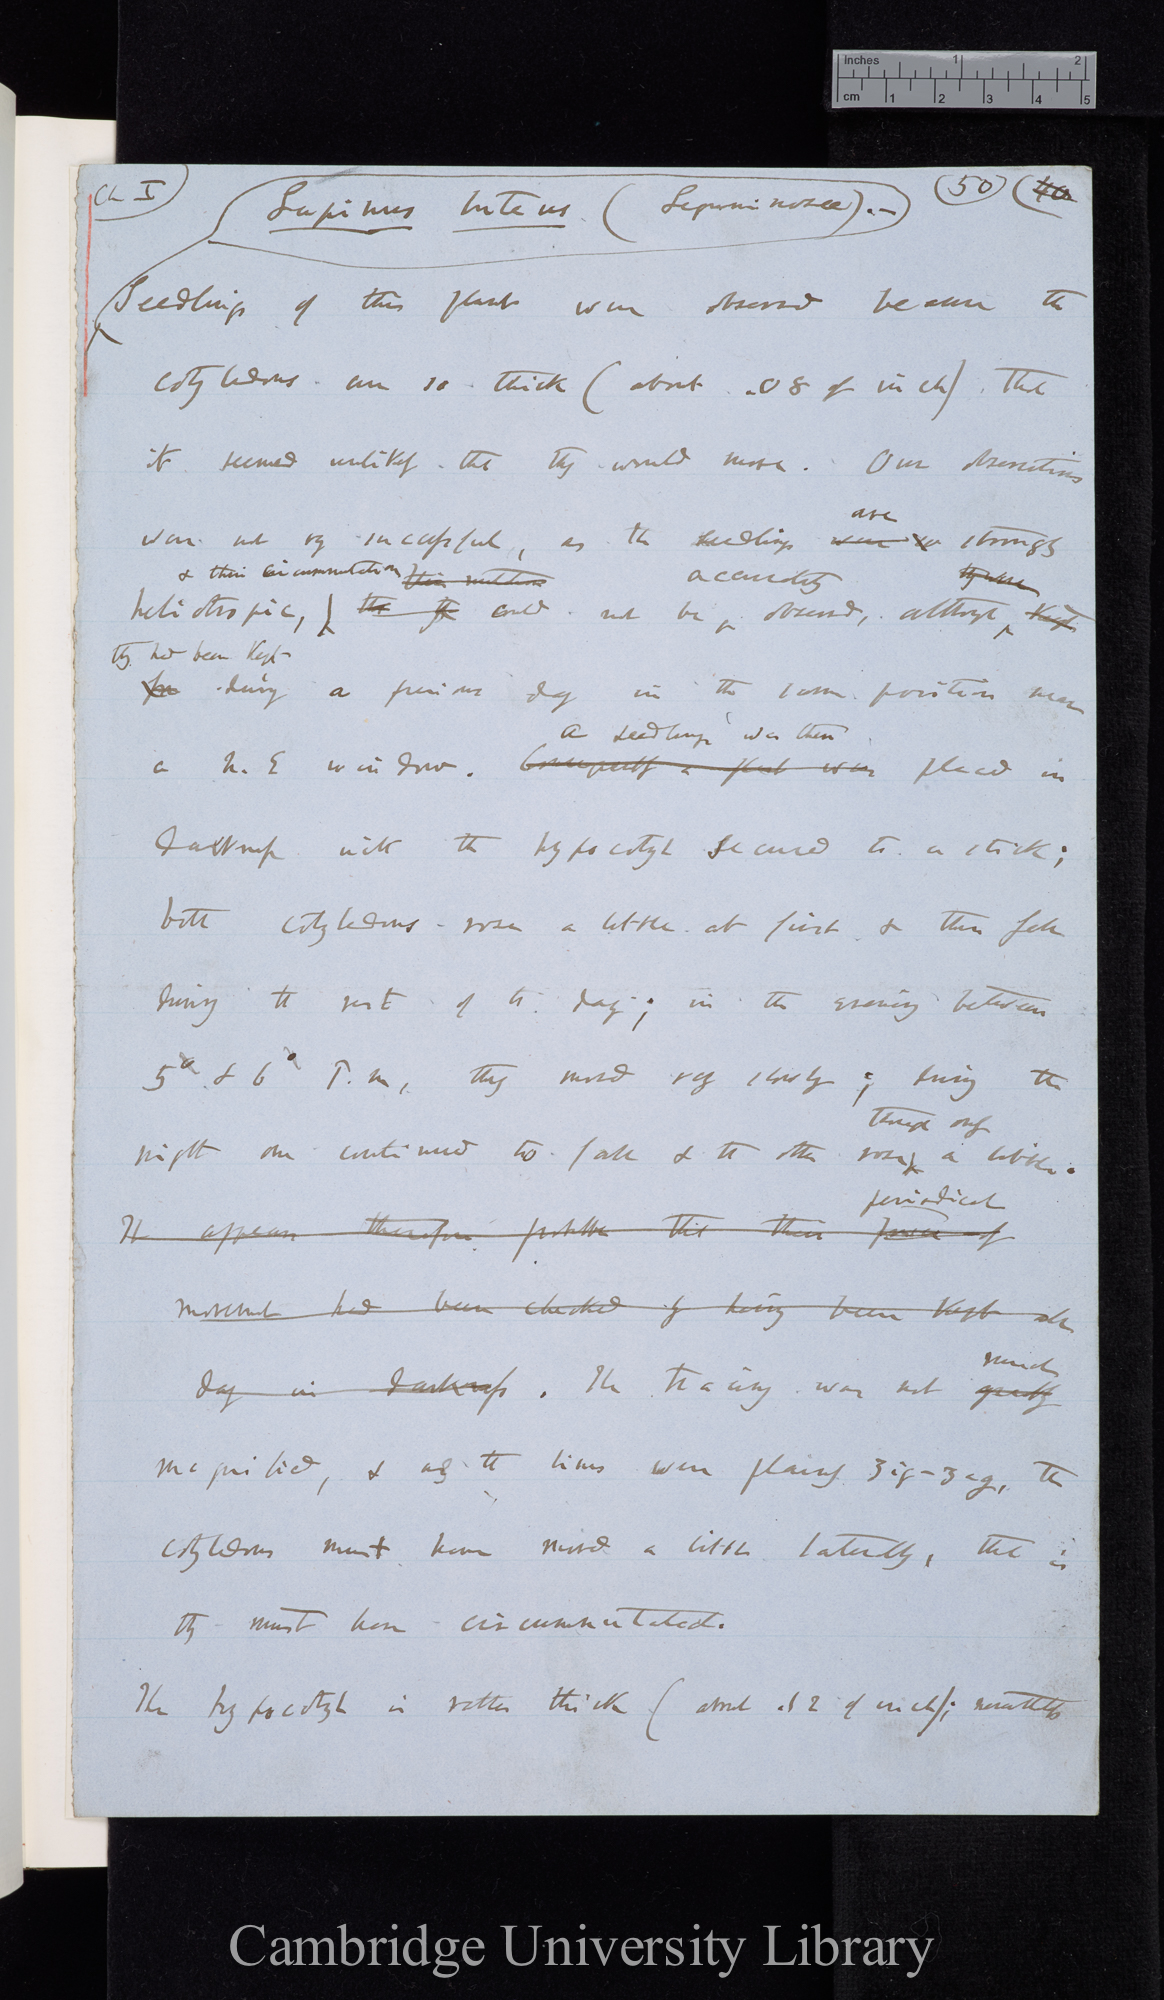 Inches 1 2
cm 1 2 3 4 5
Ch I
Lupinus luteus (Leguminosae).—
50 40
Seedlings of this plant were observed because the
cotyledons are so thick (about .08 of inch) that
it seemed unlikely that they would move. Our observations
are
were not very successful, as the seedlings were so strongly
& their circumnutation their accurately they were
heliotropic, could not be observed, although kept
they had been kept
for during a previous day in the same position near
a seedling was then
a N.E window. Consequently a plant was placed in
darkness with the hypocotyl secured to a stick;
both cotyledons rose a little at first & then fell
during the rest of the day; in the evening between
5 & 6 P.m, they moved very slowly; during the
though only
night one continued to fall & the other rose, a little.
periodical
It appears therefore probable that their power of
movement had been checked by having been kept all
much
day in darkness. The tracing was not greatly
magnified, & as the lines were plainly zig-zag, the
cotyledons must have moved a little laterally, that is
they must have circumnutated.
The hypocotyl is rather thick (about .12 of inch); nevertheless
Cambridge University Library